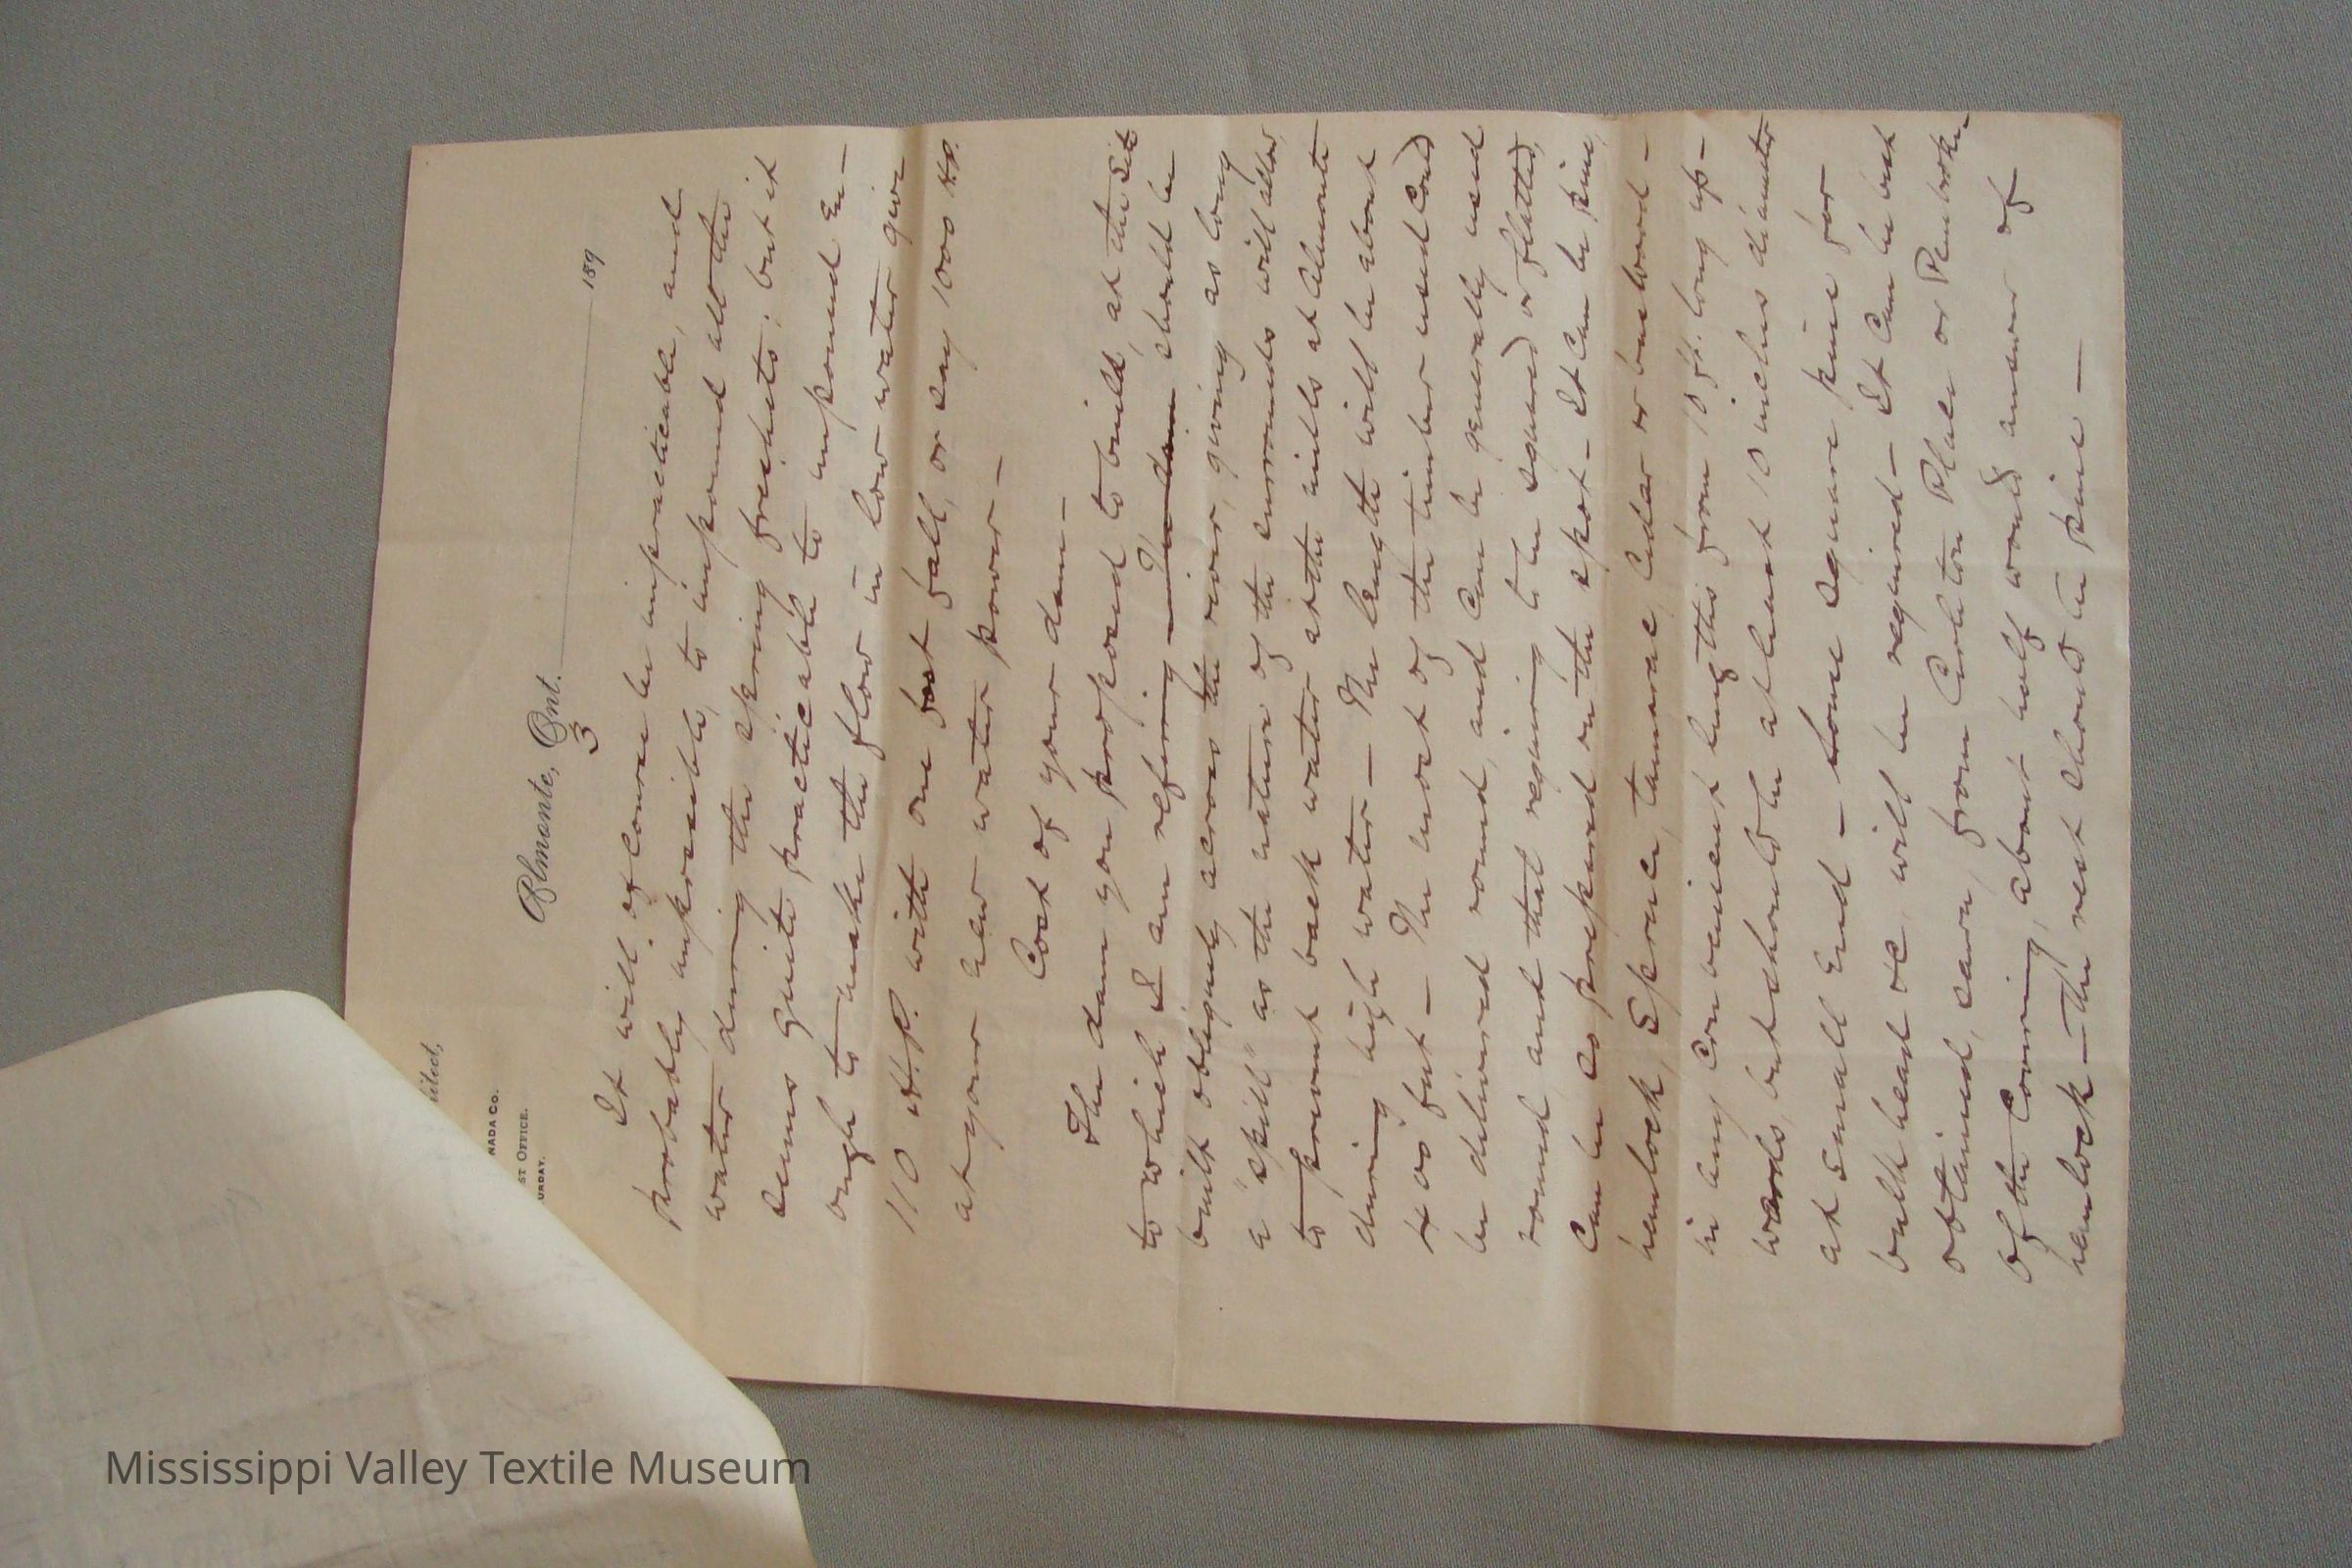 ited,
NADA CO.
ST OFFICE.
URDAY.
Almonte, Ont. 189
3
It will of course be impracticable, and
probably impossible, to impound all the
water during the spring freshets; but it
seems quite practicable to impound en-
ough to make the flow in low water give
110 H.P. with one foot fall, or say 1000 H.P.
at your new water power —
Cost of your dam —
The dam you proposed to build, at the site
to which I am refering — The dam should be
built obliquely across the river, giving as long
a "spill" as the nature of the surrounds will allow,
to prevent back water at the mills at Almonte
during high water — The length will be about
400 feet — The most of the timber used could
be delivered round, and can be generally used
round and that requiring to be squared or flatted,
can be so prepared on the spot — It can be pine,
hemlock, spruce, tamarac, cedar or basswood —
in any convenient lengths from 10 ft. long up-
wards, but should be at least 10 inches diameter
at small end — Some square pine for
bulk head &c will be required — It can be best
obtained, sawn, from Carleton Place or Pembroke
Of the covering, about half would answer of
hemlock — The rest should be pine —
Mississippi Valley Textile Museum